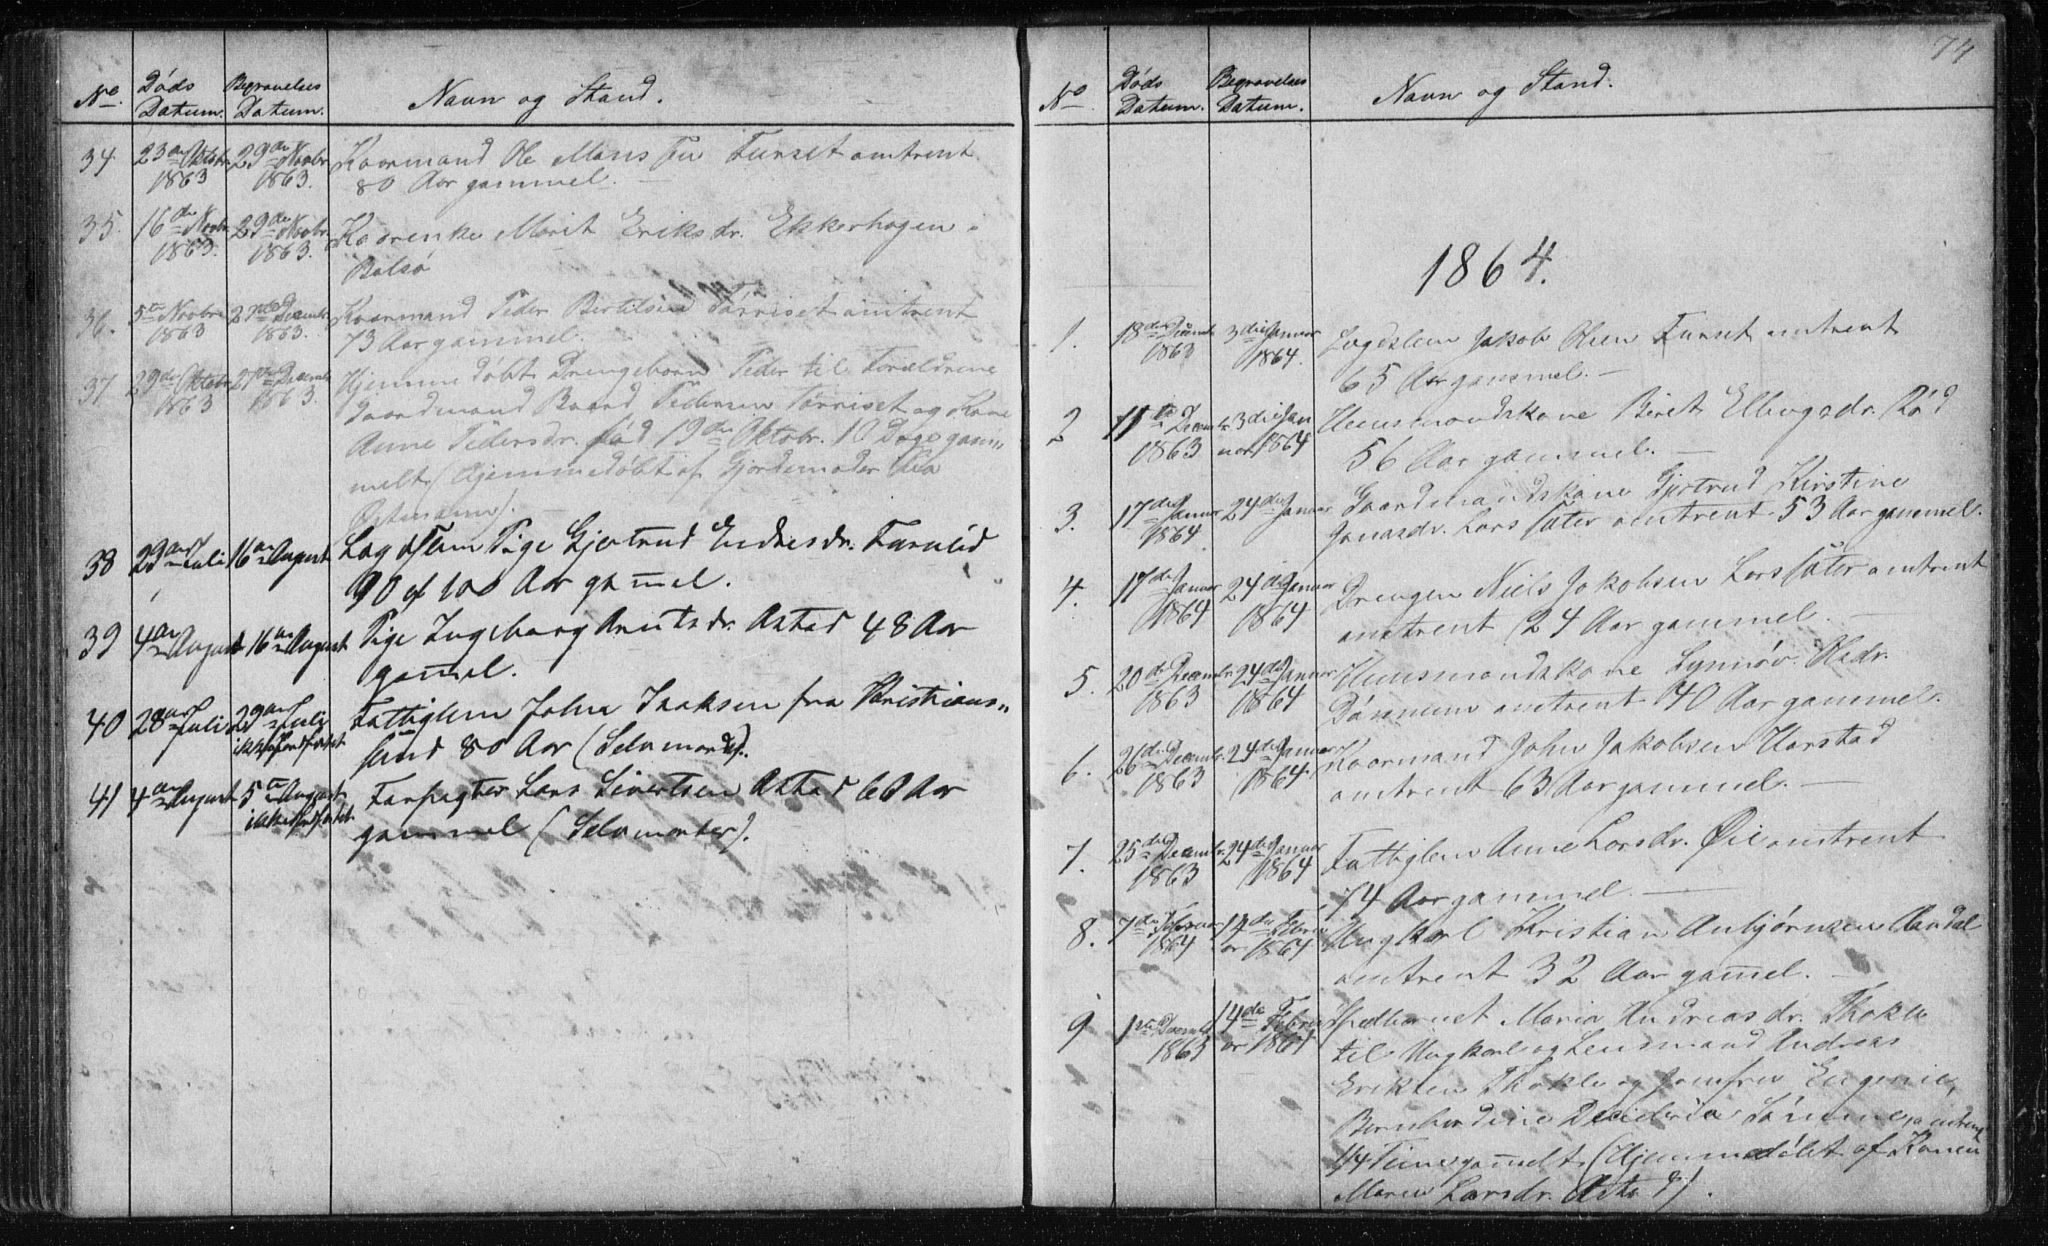 No. Døds Datum. Begravelses Datum. Navn og Stand.
34. 23de Oktobr. 1863 29de Novbr. 1863. Kaarmand Ole Mons Furset omtrent
80 Aar gammel. —
35. 16de Novbr. 1863. 29de Novbr. 1863. Kaarenke Marit Eriksdr. Ekkerhagen i
Bolsø
36. 5te Novbr. 1863 27de Decembr. 1863. Kaarmand Peder Bertilsen Tørriset omtrent
73 Aar gammel.
37 29de Oktobr. 1863 27de Decembr. 1863. Hjemmedøbt Drengebarn Peder til Forældrene
Gaardmand Baard Pedersen Tørriset og Kone
Anne Pedersdr. fød 19de Oktobr. 10 Dage gam„
melt (Hjemmedøbt af Gjordemoder
).
38 29de Juli 16de August Lægdslem Pige Gjertrud Endresdr.
90 af 100 Aar gamel.
39 4de August 16de August Pige Ingeborg Arntsdr. Astad 48 Aar
gamel.
40 28de Juli 29de Juli ikke Jordfæstet Fattiglem John Isaksen fra Kristians„
sund 80 Aar (Selvmorder).
41 4de August 5te August ikke Jordfæstet Forpagter Lars Sivertsen Astad 60 Aar
gammel (Selvmorder).
74
No Døds Datum. Begravelses Datum. Navn og Stand.
1864.
1. 18de Decembr. 1863 3die Januar 1864. Lægdslem Jakob Olsen Furset omtrent
65 Aar gammel. —
2 11te Decembr. 1863 3die Januar 1864 Huusmandskone Beret Ellingsdr. Rød
56 Aar gammel. —
3. 17de Januar 1864. 24de Januar Gaardmandskone Gjertrud Kirstine
Jonasdr. Larssæter omtrent 53 Aar gammel.
4. 17de Januar 1864 24de Januar 1864 Drengen Niels Jakobsen Larssæter omtrent
24 Aar gammel. —
5. 20de Decembr. 1863 24de Januar 1864 Huusmandskone Synnøv Olsdr.
omtrent 40 Aar gammel.
6. 26de Decembr. 1863 24de Januar 1864. Kaarmand John Jakobsen Harstad
omtrent 63 Aar gammel. —
7. 25de Decembr. 1863 24de Januar 1864 Fattiglem Anne Larsdr. Øie omtrent
74 Aar gammel. —
8. 7de Februar 1864 14de Februar 1864 Ungkarl Kristian Anbjørnsen Aandal
omtrent 32 Aar gamel. —
9 1ste Decembr. 1863 14de Februar 1864 Spedbarnet Maria Andreasdr. Thokle
til Ungkarl og Lensmand Andreas
Eriksen Thokle og Jomfru Eugenie
Bernhardine Desideria omtrent
14 Timer gamelt (Hjemmedøbt af Konen
Maren Larsdr. Astad).